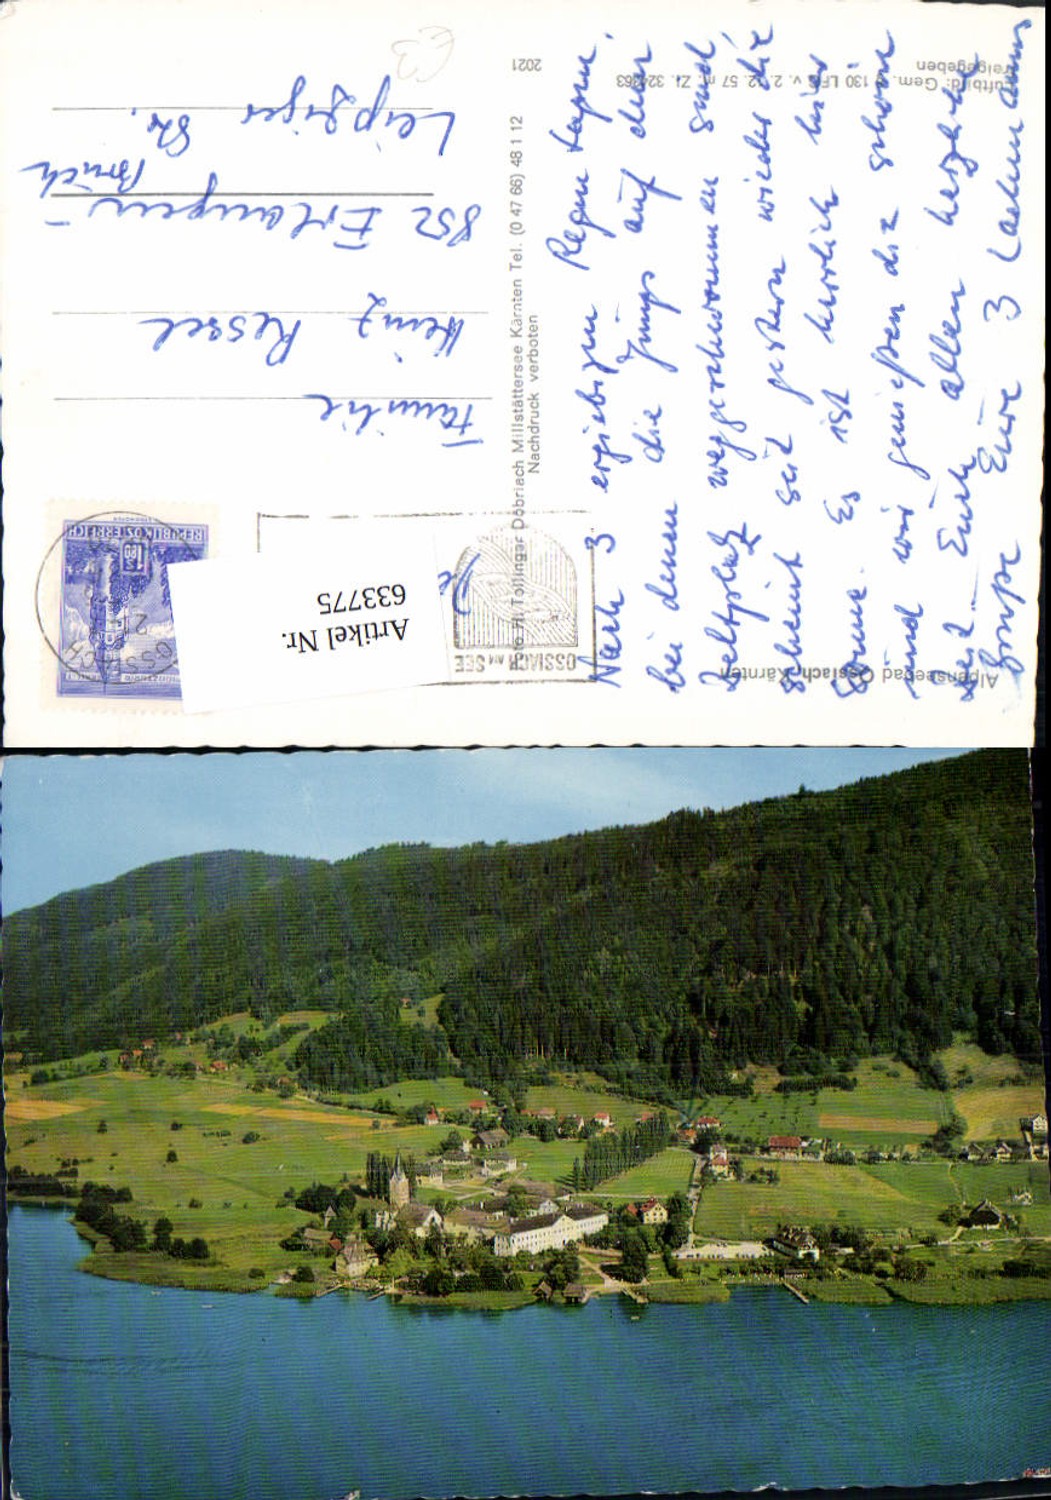 Alpenseebad Ossiach, Kärnten
Luftbild: Gem. § 130 LFG v. 2. 12. 57 m. Zl.
freigegeben
Nach 3 ergiebigen Regentagen,
bei denen die Jungs auf dem
Zeltplatz weggeschwommen sind,
scheint seit gestern wieder die
Sonne. Es ist herrlich hier
und wir genießen die schöne
Zeit. Euch allen herzliche
Grüße Eure 3 Lachmanns
Foto M. Tollinger Döbriach Millstättersee Kärnten Tel. (0 47 66) 48 1 12
Nachdruck verboten
2021
OSSIACH AM SEE
REPUBLIK ÖSTERREICH
S 1.80
OSSIACH
Artikel Nr.
633775
Familie
Heinz Ressel
852 Erlangen-
Bruck
Leipziger
Str.
€3